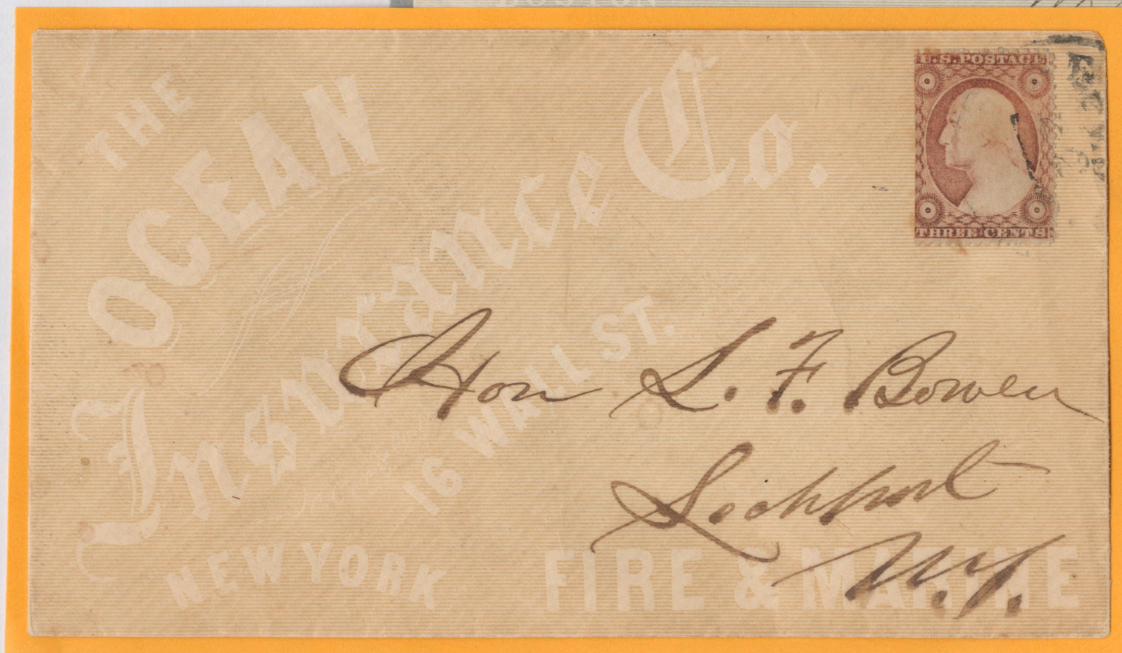 BOSTON
THE
OCEAN
Insurance Co.
16 WALL ST.
NEW YORK
FIRE & MARINE
U.S. POSTAGE
THREE CENTS
Hon L. F. Bowen
Lockport
N.Y.